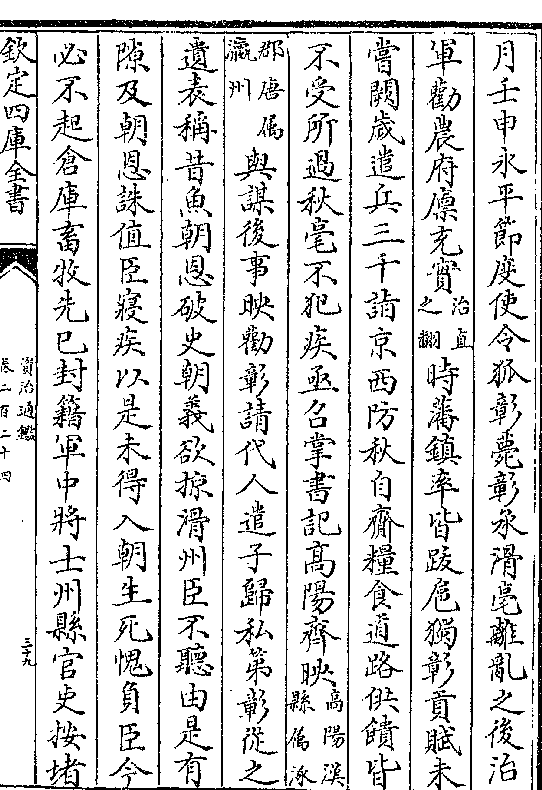 月壬申永平節度使令狐彰薨彰承滑亳離亂之後治
軍勸農府廪充實治直之翻時藩鎮率皆跋扈獨彰貢賦未
嘗闕歲遣兵三千詣京西防秋自齎糧食道路供饋皆
不受所過秋毫不犯疾亟召掌書記高陽齊映高陽漢縣屬涿
郡唐屬瀛州與謀後事映勸彰請代人遣子歸私第彰從之
遺表稱昔魚朝恩破史朝義欲掠滑州臣不聽由是有
隙及朝恩誅值臣寢疾以是未得入朝生死愧負臣今
必不起倉庫畜牧先已封籍軍中將士州縣官吏按堵
欽定四庫全書
資治通鑑
卷二百二十四
三十九